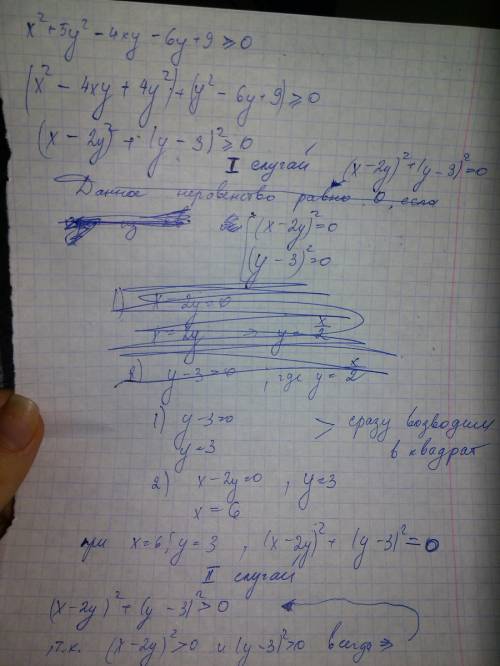 x² + 5y² - 4xy - 6y + 9 ≥ 0
(x² - 4xy + 4y²) + (y² - 6y + 9) ≥ 0
(x - 2y)² + (y - 3)² ≥ 0
I случай
(x - 2y)² + (y - 3)² = 0
Данное неравенство равно 0, если
(x - 2y)² = 0
(y - 3)² = 0
1) x - 2y = 0
x = 2y => y = x/2
2) y - 3 = 0, где y = x/2
1) y - 3 = 0
y = 3
> сразу возводим
в квадрат
2) x - 2y = 0, y = 3
x = 6
при x = 6; y = 3, (x - 2y)² + (y - 3)² = 0
II случай
(x - 2y)² + (y - 3)² > 0
т.к. (x - 2y)² > 0 и (y - 3)² > 0 всегда =>